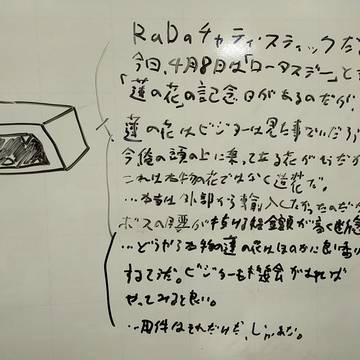 RaDaチャティスティックだ
今日、4月8日は「ロータスデー」と
「蓮の花」の記念日があるのだが、
蓮の花はビジターは見た事でいだろう
今俺の頭の上に乗って立る花が
これは本物の花ではなく造花だ。
…本当は外部から輸入したかったのだが
ボスの 金額が高く断念
…どうやら本物の蓮の花はほのかに良い香り
するそうだ。ビジターも機会があれば
やってみると良い。
…用件はそれだけだ、じゃあな。